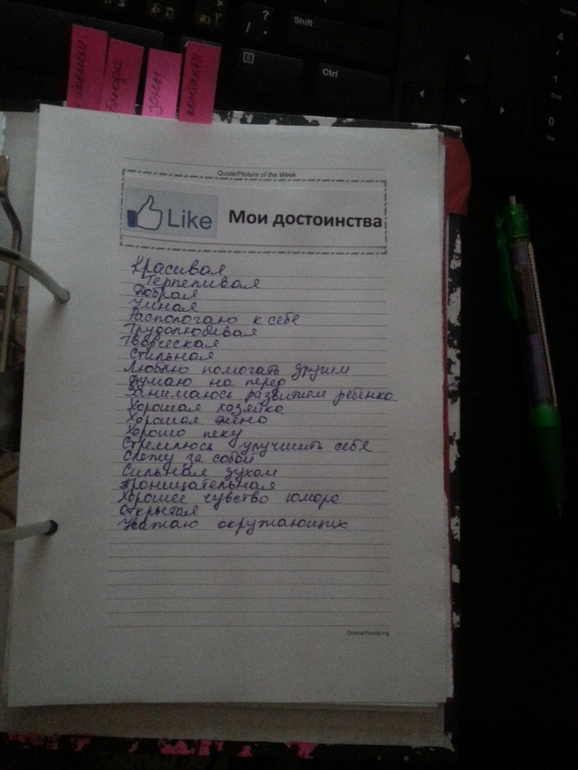 Shift
Ctrl
Quote/Picture of the Week
Like Мои достоинства
Красивая
Терпеливая
Добрая
Умная
Распологаю к себе
Трудолюбивая
Творческая
Стильная
Люблю помогать другим
Думаю на перед
Занимаюсь развитием ребенка
Хорошая хозяйка
Хорошая жена
Хорошо пеку
Стремлюсь улучшить себя
Слежу за собой
Сильная духом
Проницательная
Хорошее чувство юмора
Открытая
Уважаю окружающих